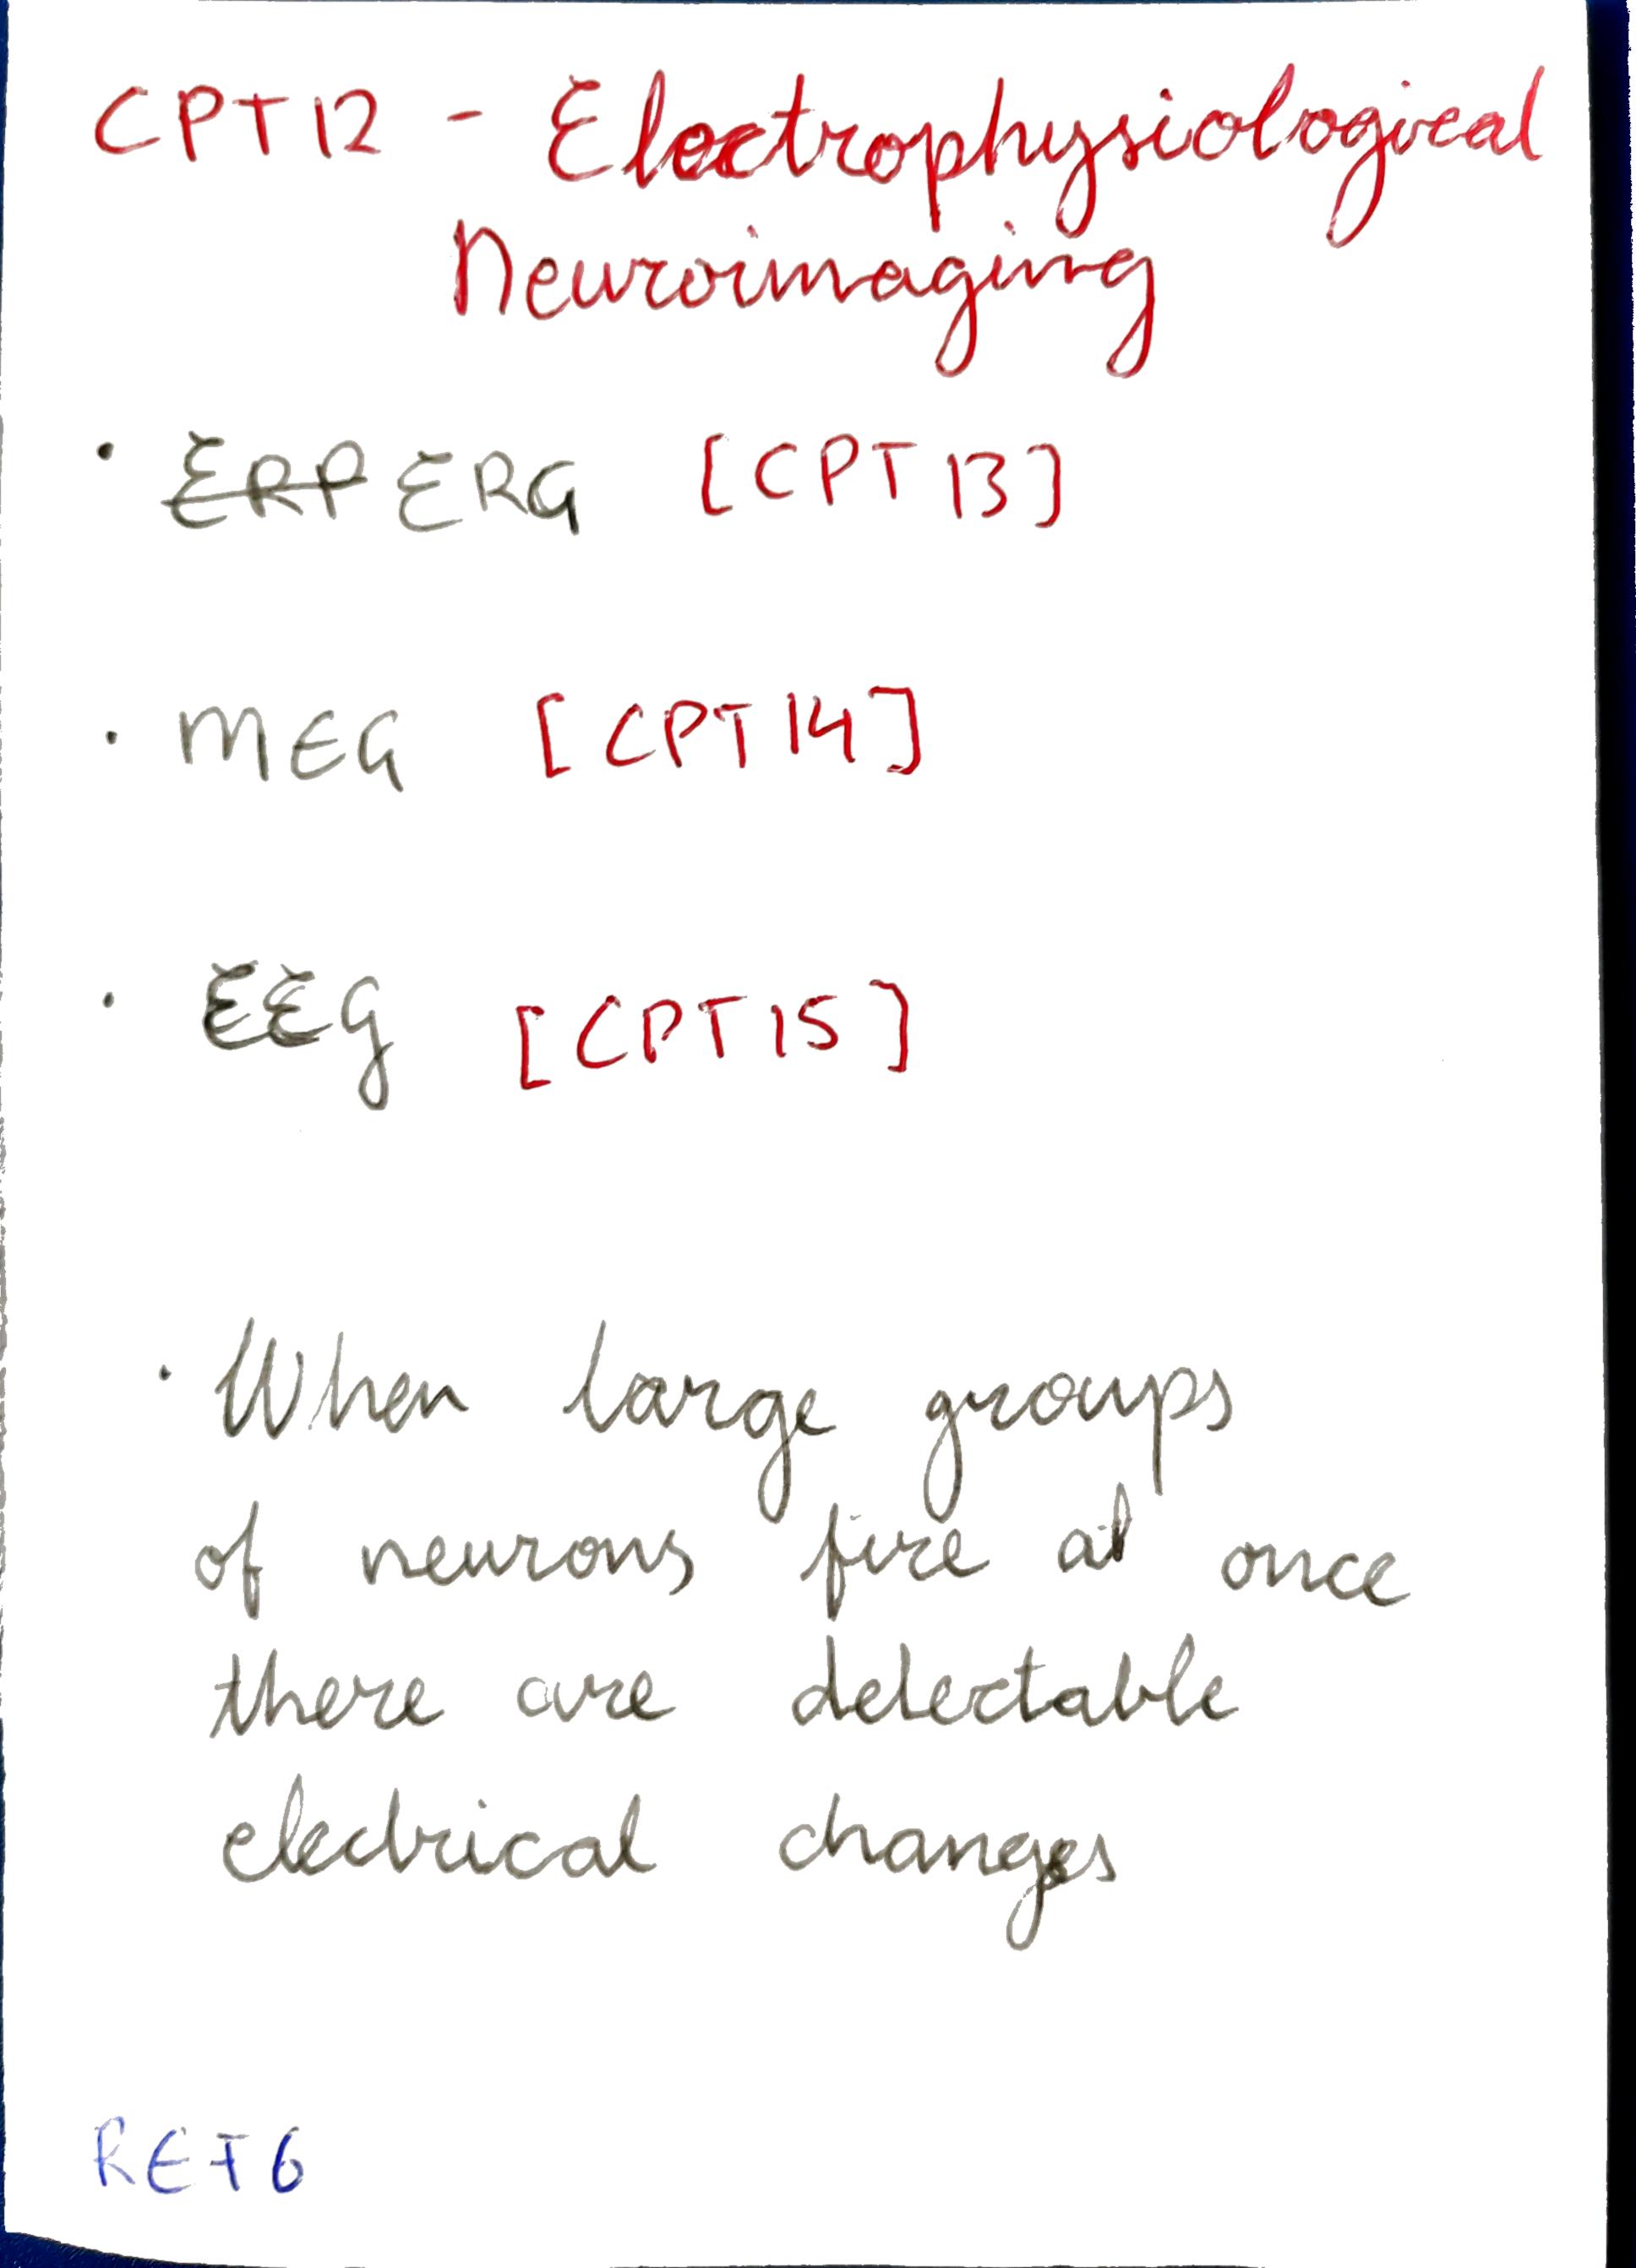 CPT12 - Electrophysiological
Neuroimaging
· ERP ERG [CPT13]
· MEG [CPT14]
· EEG [CPT15]
· When large groups
of neurons fire at once
there are detectable
electrical changes
REF6